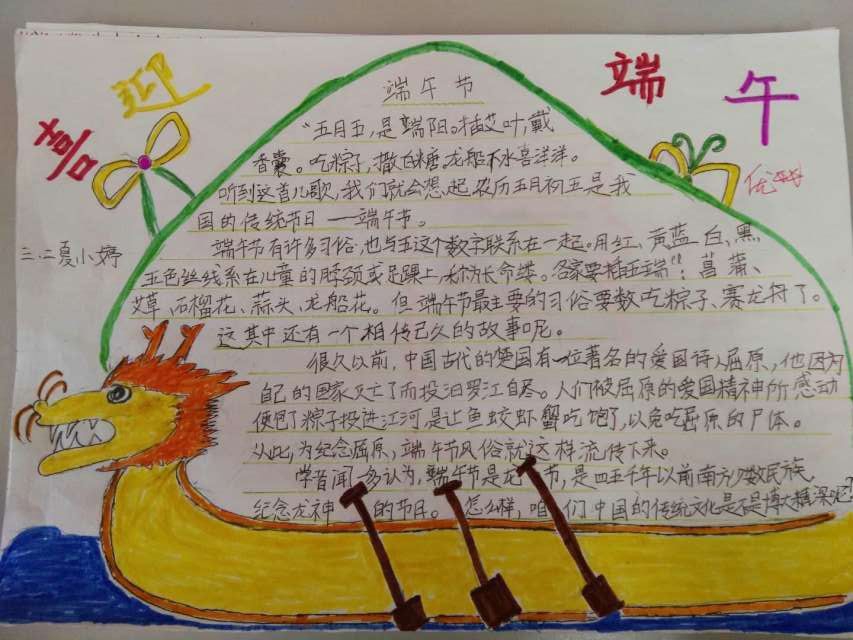 喜迎端午
优
三.二夏小婷
端午节
“五月五,是端阳。插艾叶,戴
香囊。吃粽子,撒白糖。龙船下水喜洋洋。
听到这首儿歌,我们就会想起农历五月初五是我
国的传统节日——端午节。
端午节有许多习俗,也与五这个数字联系在一起。用红、黄蓝白、黑
五色丝线系在儿童的脖颈或足踝上,称为长命缕。各家要插五端”:菖蒲、
艾草、石榴花、蒜头、龙船花。但端午节最主要的习俗要数吃粽子、赛龙舟了。
这其中还有一个相传已久的故事呢。
很久以前,中国古代的楚国有一位著名的爱国诗人屈原,他因为
自己的国家灭亡了而投汨罗江自尽。人们被屈原的爱国精神所感动
便包了粽子投进江河,是让鱼蛟虾蟹吃饱了,以免吃屈原的尸体。
从此,为纪念屈原,端午节风俗就这样流传下来。
学者闻一多认为,端午节是龙 节,是四五千年以前南方少数民族
纪念龙神 的节日。 怎么样,咱 们中国的传统文化是不是博大精深呢?